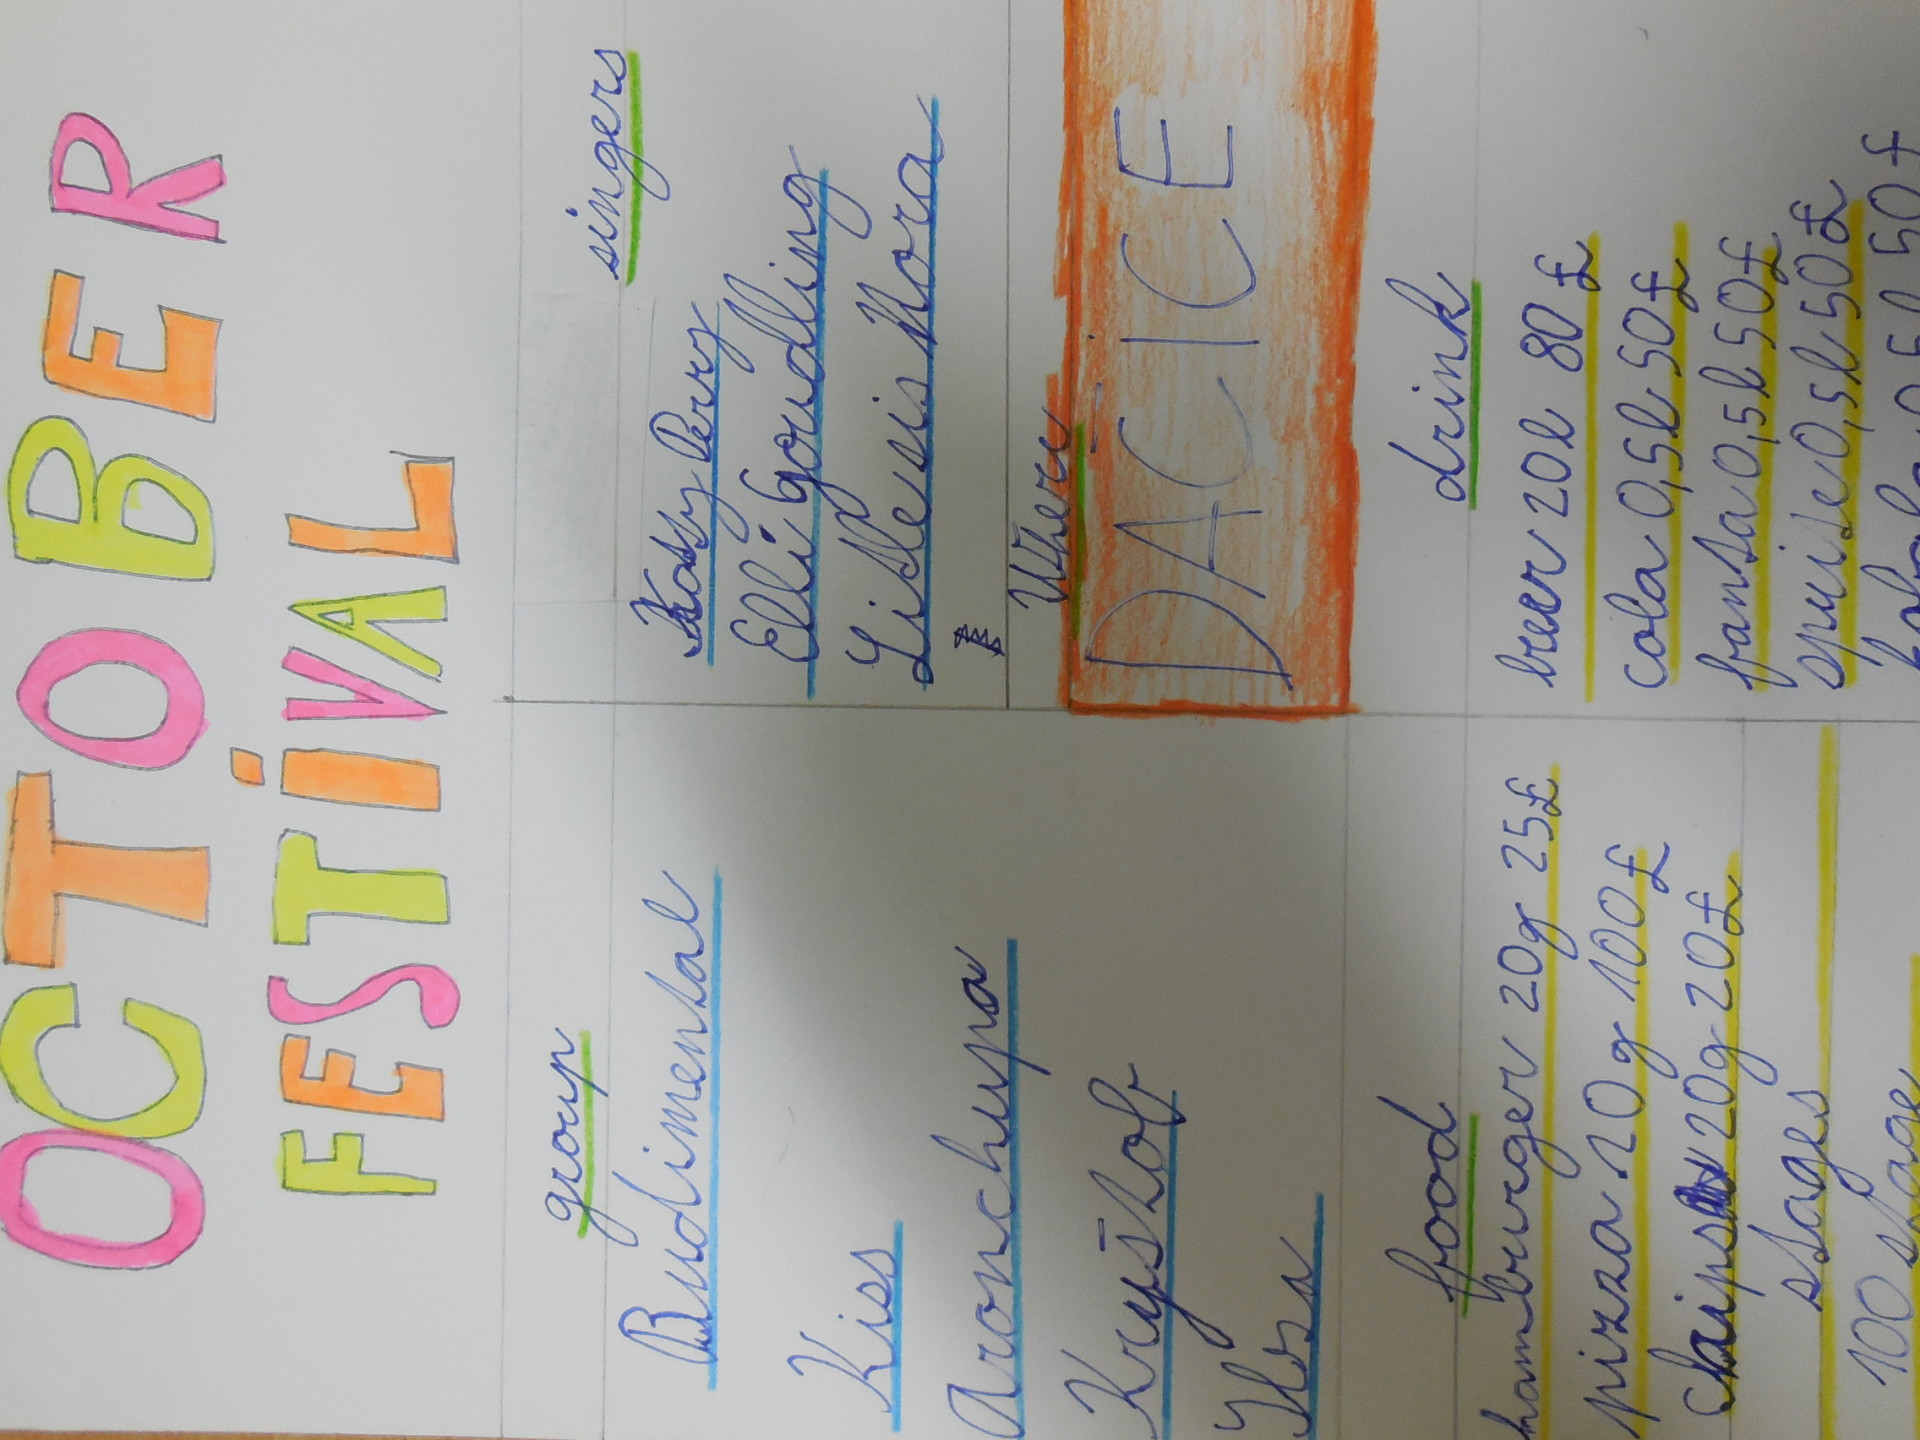 OCTOBER
FESTIVAL
group
Rudimental
Kiss
Aronchupa
Kryštof
singers
Katty Perry
Elli Gouldling
Where
DAČICE
food
hamburger 20g 25£
pizza 20g 100£
20g 20£
stages
100 stage
drink
beer 20l 80£
cola 0,5l 50£
fanta 0,5l 50£
0,5l 50£
0,5l 50£